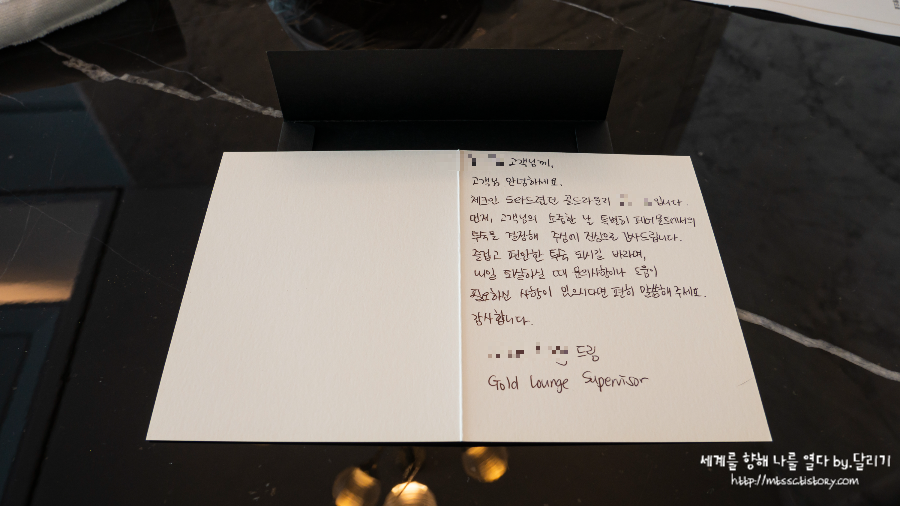 고객님께,
고객님 안녕하세요.
체크인 도와드렸던 골드라운지 입니다.
먼저, 고객님의 소중한 날 특별히 페어몬트에서의
투숙을 결정해 주심에 진심으로 감사드립니다.
즐겁고 편안한 투숙 되시길 바라며,
내일 퇴실하실 때 문의사항이나 도움이
필요하신 사항이 있으시다면 편히 말씀해 주세요.
감사합니다.
드림
Gold Lounge Supervisor
세계를 향해 나를 열다 by.달리기